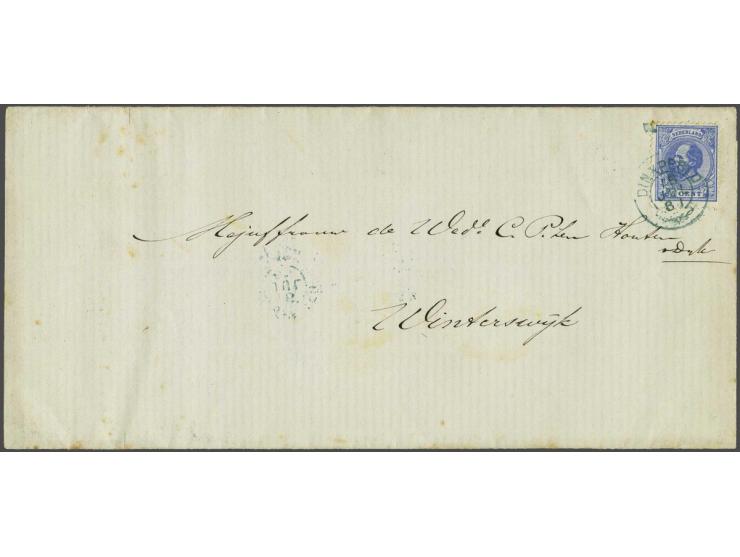 NEDERLAND
CENT
DINXPERLO
Mejuffrouw de Wed. C. P. ten Houten
Winterswijk